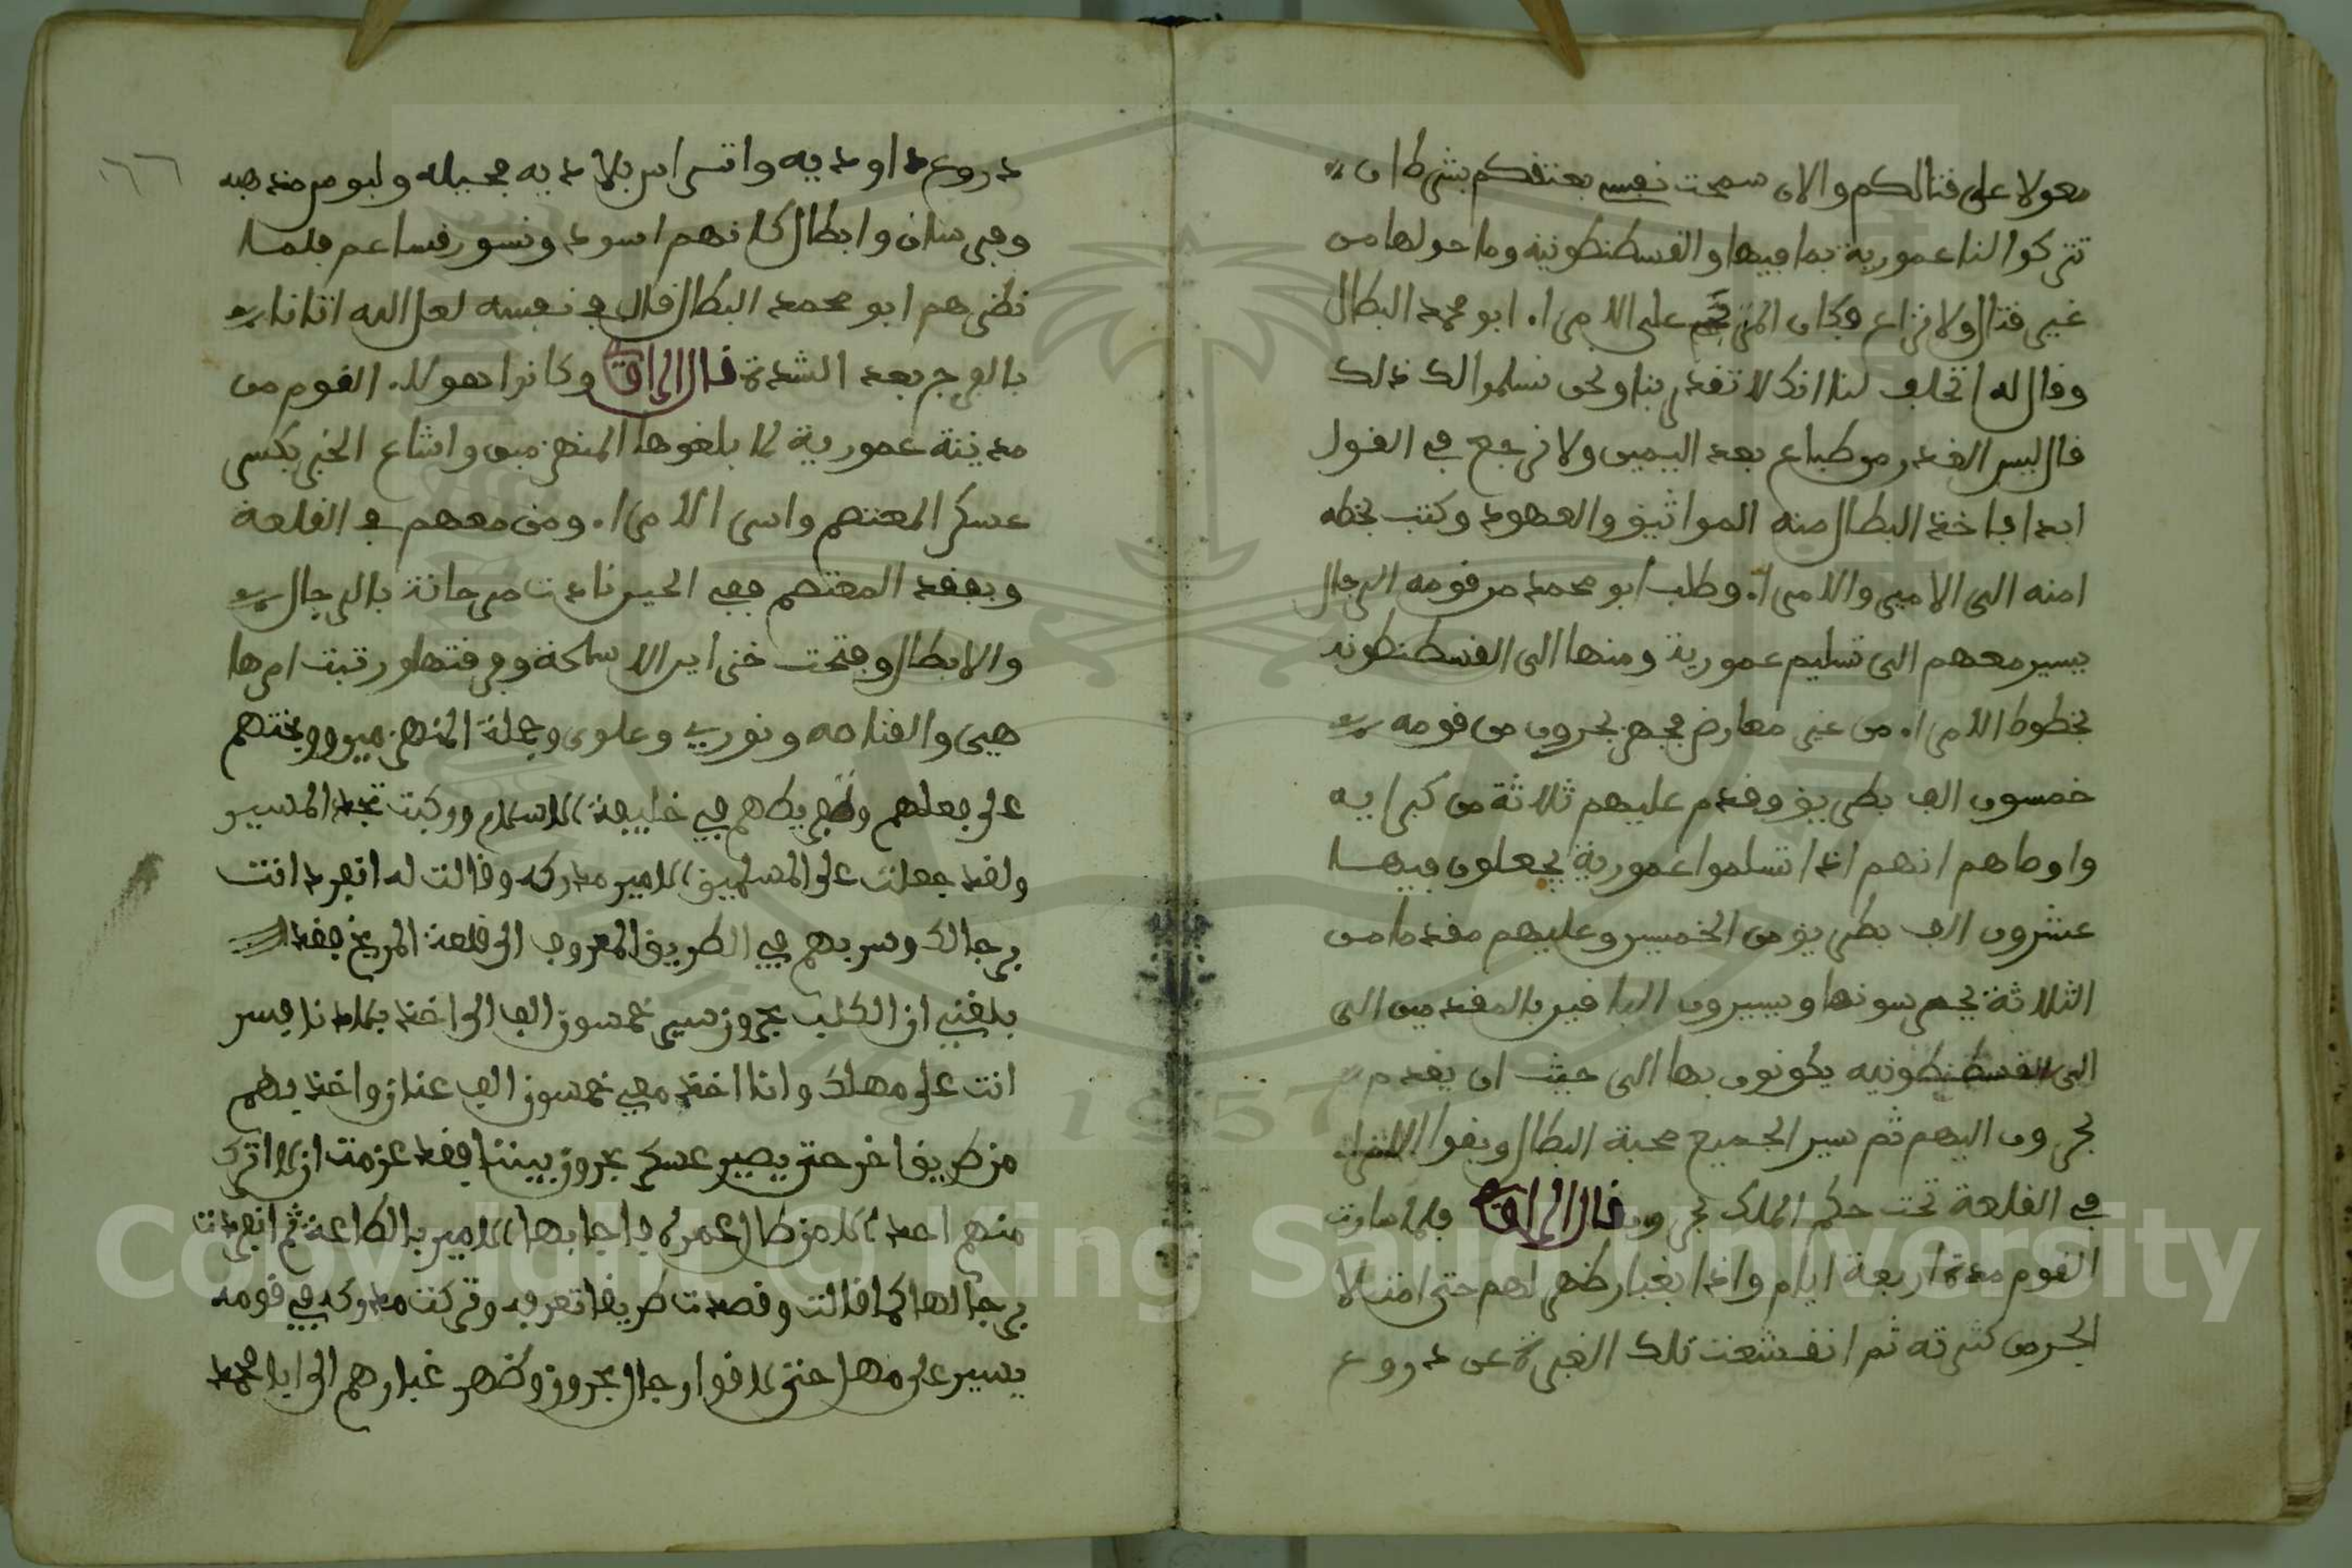 معولا على قتالكم والان سمحت نفسي بعتقكم بشرط ان
تتركوا لنا عمورية بما فيها والقسطنطونية وما حولها من
غير قتال ولا نزاع فكان المترجم على الامراء ابو محمد البطال
وقال له اتحلف لنا انك لا تغدر بنا ونحن نسلموا لك ذلك
قال ليس الغدر من طباع بعد اليمين ولا نرجع في القول
ابدا فاخذ البطال منه المواثيق والعهود وكتب بخطه
امنه الى الامير والامراء وطلب ابو محمد من قومه الرجال
يسير معهم الى تسليم عمورية ومنها الى القسطنطونيه
بخطوط الامراء من غير معارض فجهز بحرون من قومه
خمسون الف بطريق وقدم عليهم ثلاثة من كبرايه
واوصاهم انهم اذا تسلموا عمورية يجعلون فيها
عشرون الف بطريق من الخمسين وعليهم مقدما من
الثلاثة يحرسونها ويسيرون الباقين بالمقدمين الى
الى القسطنطونيه يكونون بها الى حيث ان يقدم
بحرون اليهم ثم سير الجميع صحبة البطال وبقوا الامراء
في القلعة تحت حكم الملك بحرون قال الراوي فلما سارت
القوم مدة اربعة ايام واذا بغبار ظهر لهم حتى امتلا
الجو من كثرته ثم انقشعت تلك الغبرة عن دروع
١٦٦
دروع داوديه واتراس بلاديه مجيله ولبوس مذهبه
وفرسان وابطال كانهم اسود ونسور قشاعم فلما
نظرهم ابو محمد البطال قال في نفسه لعل الله اتانا
بالفرج بعد الشدة قال الراوي وكانوا هولاء القوم من
مدينة عمورية لما بلغوها المنهزمين واشاع الخبر بكسر
عسكر المعتصم واسر الامراء ومن معهم في القلعة
وبفقد المعتصم ففي الحين نادت مرجانة بالرجال
والابطال وفتحت خزاين الاسلحة وفرقتها ورتبت امرها
هي والقناصه ونوري وعلوى وجملة المنهزمين ووبختهم
على فعلهم وتفريطهم في خليفة الاسلام وركبت تجد المسير
ولقد جعلت على المسلمين الامير مدركه وقالت له انفرد انت
برجالك وسر بهم في الطريق المعروف الى قلعة المريخ فقد
بلغني ان الكلب بحرون سير خمسون الف الى اخذ بلادنا فسر
انت على مهلك وانا اخذ معي خمسون الف عنان واخذ بهم
من طريق اخر حتى يصير عسكر بحرون بيننا فقد عزمت ان لا اترك
منهم احد الا من طال عمره فاجابها الامير بالطاعة ثم انفردت
برجالها كما قالت وقصدت طريقا تعرفه وتركت مدركه في قومه
يسير على مهل حتى لاقوا رجال بحرون وظهر غبارهم الى ابا محمد
Copyright © King Saud University
1957